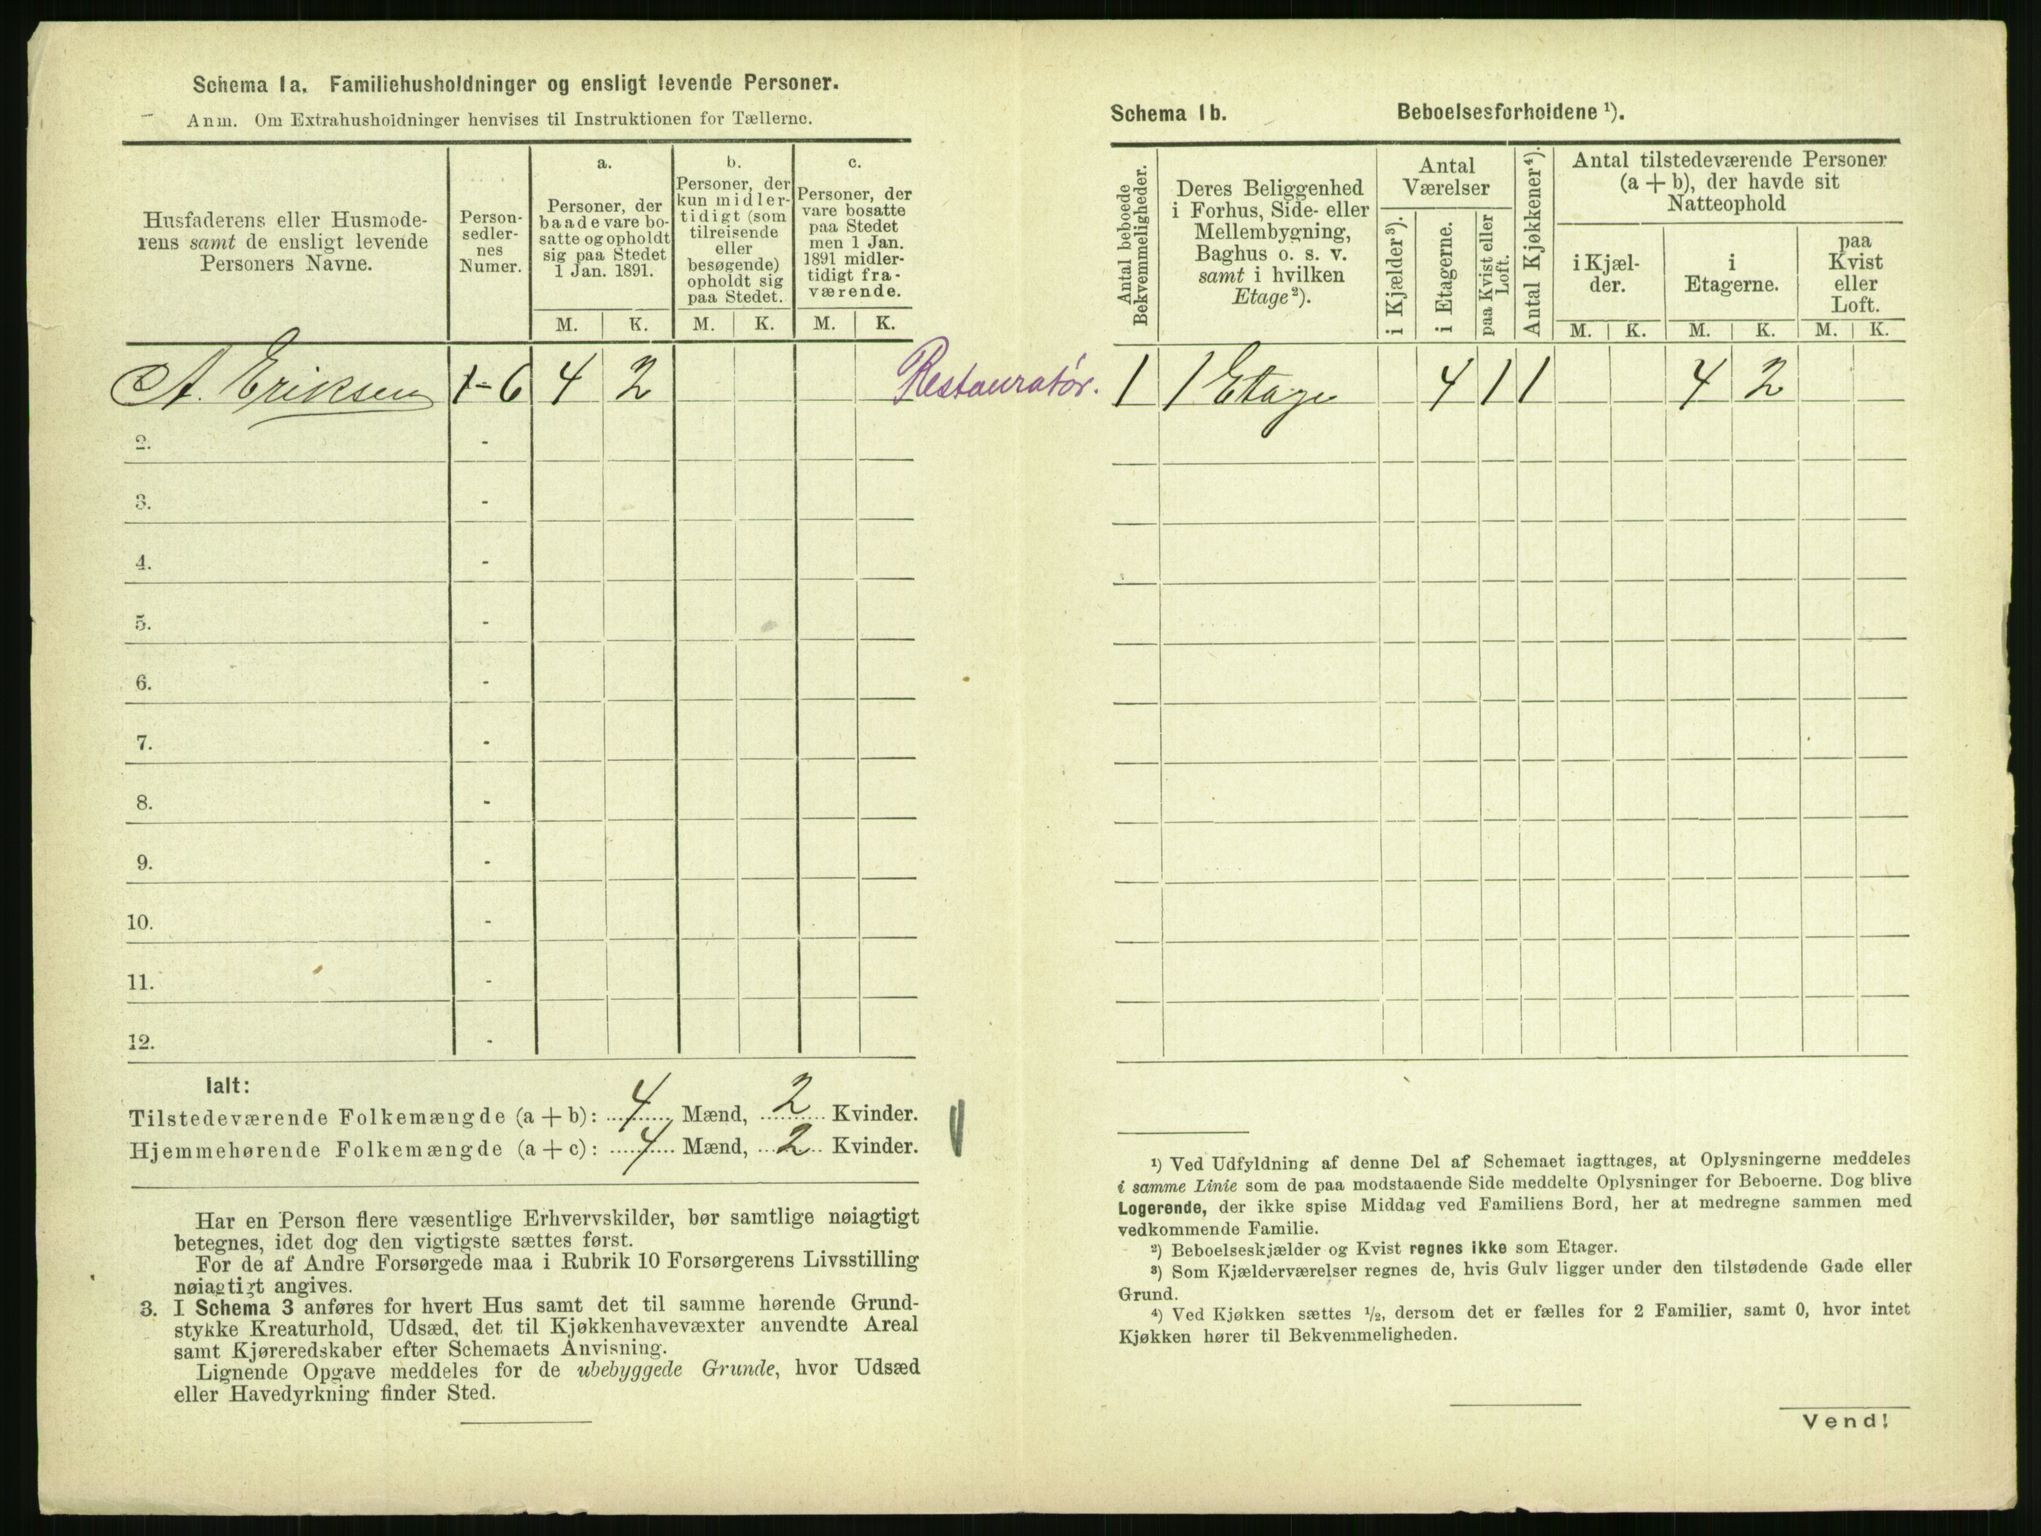 Schema 1a. Familiehusholdninger og ensligt levende Personer.
Anm. Om Extrahusholdninger henvises til Instruktionen for Tællerne.
Husfaderens eller Husmode-
rens samt de ensligt levende
Personers Navne.
Person-
sedler-
nes
Numer.
a.
Personer, der
baade vare bo-
satte og opholdt
sig paa Stedet
1 Jan. 1891.
b.
Personer, der
kun midler-
tidigt (som
tilreisende
eller
besøgende)
opholdt sig
paa Stedet.
c.
Personer, der
vare bosatte
paa Stedet
men 1 Jan.
1891 midler-
tidigt fra-
værende.
M. K. M. K. M. K.
A. Eriksen 1-6 4 2
Restauratør.
2. -
3. -
4. -
5. -
6. -
7. -
8. -
9. -
10. -
11. -
12. -
Ialt:
Tilstedeværende Folkemængde (a + b): 4 Mænd, 2 Kvinder.
Hjemmehørende Folkemængde (a + c): 4 Mænd, 2 Kvinder.
Har en Person flere væsentlige Erhvervskilder, bør samtlige nøiagtigt
betegnes, idet dog den vigtigste sættes først.
For de af Andre Forsørgede maa i Rubrik 10 Forsørgerens Livsstilling
nøiagtigt angives.
3. I Schema 3 anføres for hvert Hus samt det til samme hørende Grund-
stykke Kreaturhold, Udsæd, det til Kjøkkenhavevæxter anvendte Areal
samt Kjøreredskaber efter Schemaets Anvisning.
Lignende Opgave meddeles for de ubebyggede Grunde, hvor Udsæd
eller Havedyrkning finder Sted.
Schema 1b. Beboelsesforholdene ¹).
Antal beboede
Bekvemmeligheder.
Deres Beliggenhed
i Forhus, Side- eller
Mellembygning,
Baghus o. s. v.
samt i hvilken
Etage ²).
Antal
Værelser
i Kjælder ³).
i Etagerne.
paa Kvist eller
Loft.
Antal Kjøkkener ⁴).
Antal tilstedeværende Personer
(a + b), der havde sit
Natteophold
i Kjæl-
der.
i
Etagerne.
paa
Kvist
eller
Loft.
M. K. M. K. M. K.
1 1 Etage 4 1 1 4 2
¹) Ved Udfyldning af denne Del af Schemaet iagttages, at Oplysningerne meddeles
i samme Linie som de paa modstaaende Side meddelte Oplysninger for Beboerne. Dog blive
Logerende, der ikke spise Middag ved Familiens Bord, her at medregne sammen med
vedkommende Familie.
²) Beboelseskjælder og Kvist regnes ikke som Etager.
³) Som Kjælderværelser regnes de, hvis Gulv ligger under den tilstødende Gade eller
Grund.
⁴) Ved Kjøkken sættes ½, dersom det er fælles for 2 Familier, samt 0, hvor intet
Kjøkken hører til Bekvemmeligheden.
Vend!